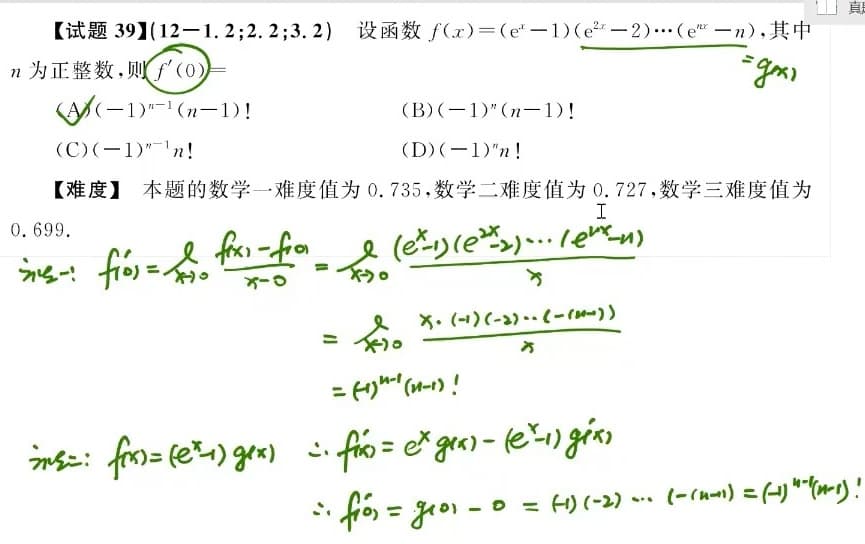 真题
【试题 39】(12-1.2;2.2;3.2) 设函数 f(x)=(eˣ-1)(e²ˣ-2)⋯(eⁿˣ-n),其中
=g(x)
n 为正整数,则 f′(0)=
(A)(-1)ⁿ⁻¹(n-1)! (B)(-1)ⁿ(n-1)!
(C)(-1)ⁿ⁻¹n! (D)(-1)ⁿn!
【难度】 本题的数学一难度值为 0.735,数学二难度值为 0.727,数学三难度值为
0.699.
法一: f′(0) = lim x→0 (f(x)-f(0))/(x-0) = lim x→0 (eˣ-1)(e²ˣ-2)⋯(eⁿˣ-n)/x
= lim x→0 x·(-1)(-2)⋯(-(n-1))/x
= (-1)ⁿ⁻¹(n-1)!
法二: f(x)=(eˣ-1)g(x) ∴ f′(x)= eˣ g(x) - (eˣ-1) g′(x)
∴ f′(0) = g(0) - 0 = (-1)(-2) ⋯ (-(n-1)) = (-1)ⁿ⁻¹(n-1)!